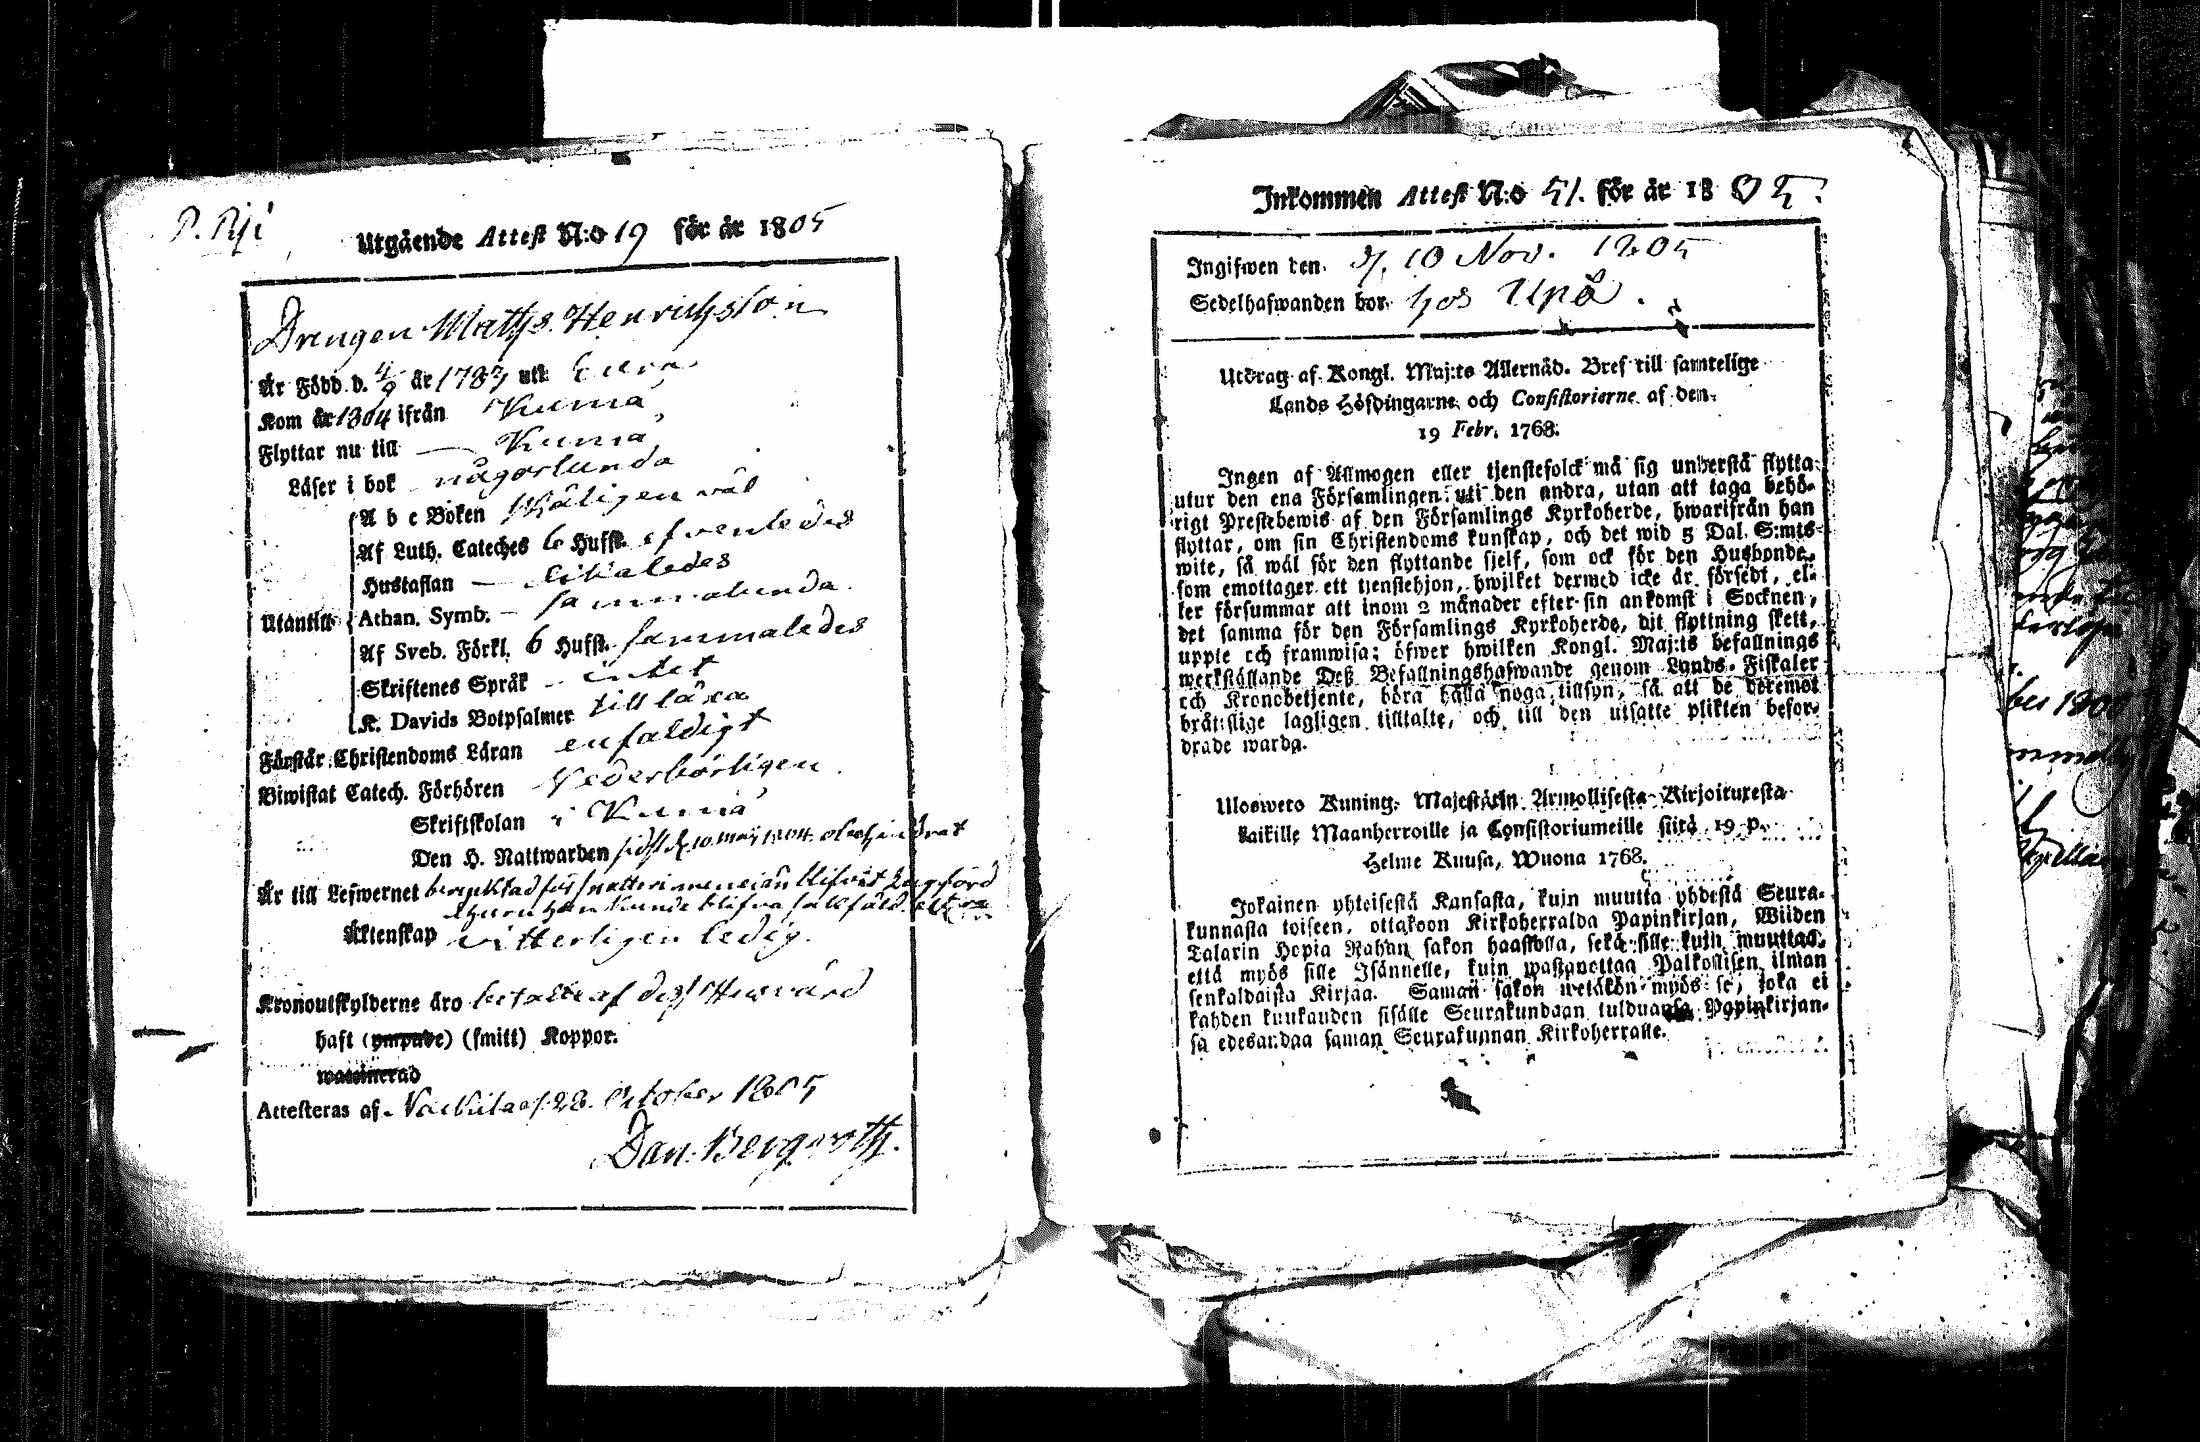 P. Pyi
Utgående Attest N:o 19 för år 1805
Drengen Matths Henrichsson
Är Född d. 4/9 år 1783 uti Eura
Kom år 1804 ifrån Kumå
Flyttar nu till — Kumå
Läser i bok någorlunda
A b c Boken skäligen väl
Af Luth. Cateches 6 Hufst. efvenledes
Hustaflan — likaledes
Utantill Athan. Symb. — sammalunda
Af Sveb. Förkl. 6 Hufst. sammaledes
Skriftenes Språk – intet
K. Davids Botpsalmer till lära
Förstår Christendoms Läran enfaldigt
Biwistat Catech. Förhören Vederbörligen
Skriftskolan i Kumå
Den H. Nattwarden sidst d. 10 Maj 1804
Är till Lefwernet
Äktenskap vitterligen ledig.
Kronoutskylderne äro betalte af dess Husvärd
haft (ympade) (smitt) Koppor.
waccinerad
Attesteras af 28. October 1805
Dan. Bergroth.
Inkommen Attest N:o 51. för år 1805.
Ingifwen den d. 10 Nov. 1805
Sedelhafwanden bor hos
Utdrag af Kongl. Maj:ts Allernåd. Bref till samtelige
Lands Höfdingarne och Consistorierne af den
19 Febr. 1768.
Ingen af Allmogen eller tjenstefolck må sig understå flytta
utur den ena Församlingen uti den andra, utan att taga behö-
rigt Prestebewis af den Församlings Kyrkoherde, hwarifrån han
flyttar, om sin Christendoms kunskap, och det wid 5 Dal. S:mts
wite, så wäl för den flyttande sjelf, som ock för den Husbonde,
som emottager ett tjenstehjon, hwilket dermed icke är försedt, el-
ler försummar att inom 2 månader efter sin ankomst i Socknen,
det samma för den Församlings Kyrkoherde, dit flyttning skett,
uppte och framwisa; öfwer hwilken Kongl. Maj:ts befallnings
werkställande Deß Befallningshafwande genom Lands-Fiskaler
och Kronobetjente, böra hålla noga tillsyn, så att de deremot
brätslige lagligen tilltalte, och till den utsatte plikten befor-
drade warda.
Ulosweto Kuning. Majestätin Armollisesta Kirjoituxesta
kaikille Maanherroille ja Consistoriumeille siitä 19 p.
Helme Kuusa, Wuona 1768.
Jokainen yhteisestä Kansasta, kuin muutta yhdestä Seura-
kunnasta toiseen, ottakoon Kirkoherralda Papinkirjan, Wiiden
Talarin Hopia Rahan sakon haastolla, sekä sille kuin muuttaa,
että myös sille Isännelle, kuin wastanottaa Palkollisen ilman
senkaldaista Kirjaa. Saman sakon wetäkön myös se, joka ei
kahden kuukauden sisälle Seurakundaan tulduansa Papinkirjan-
sa edesandaa saman Seurakunnan Kirkoherralle.